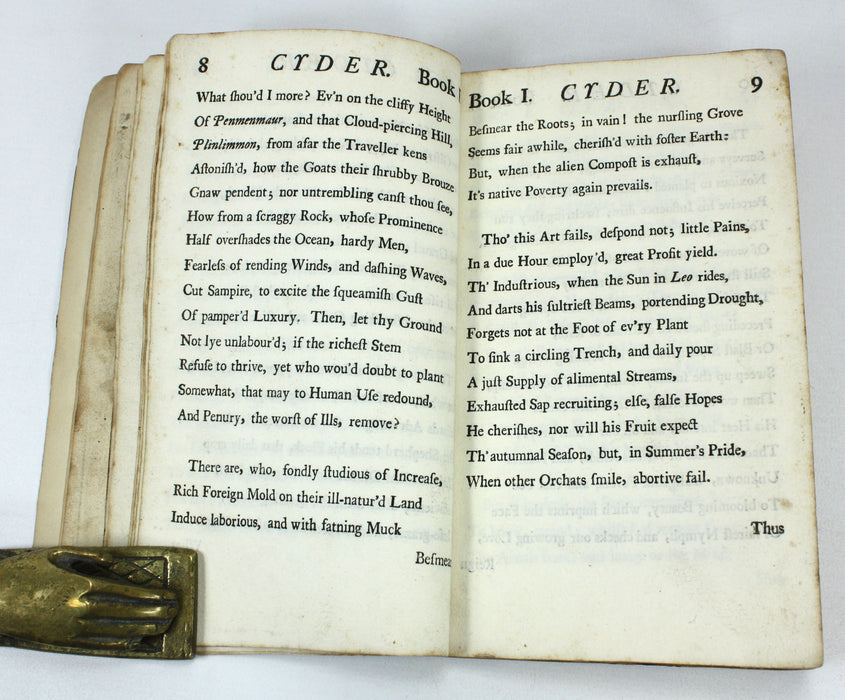 8 CYDER. Book
What ſhou'd I more? Ev'n on the cliffy Height
Of Penmenmaur, and that Cloud-piercing Hill,
Plinlimmon, from afar the Traveller kens
Aſtoniſh'd, how the Goats their ſhrubby Brouze
Gnaw pendent; nor untrembling canſt thou ſee,
How from a ſcraggy Rock, whoſe Prominence
Half overſhades the Ocean, hardy Men,
Fearleſs of rending Winds, and daſhing Waves,
Cut Sampire, to excite the ſqueamiſh Guſt
Of pamper'd Luxury. Then, let thy Ground
Not lye unlabour'd; if the richeſt Stem
Refuſe to thrive, yet who wou'd doubt to plant
Somewhat, that may to Human Uſe redound,
And Penury, the worſt of Ills, remove?
There are, who, fondly ſtudious of Increaſe,
Rich Foreign Mold on their ill-natur'd Land
Induce laborious, and with fatning Muck
Beſmear
Book I. CYDER. 9
Beſmear the Roots; in vain! the nurſling Grove
Seems fair awhile, cheriſh'd with foſter Earth:
But, when the alien Compoſt is exhauſt,
It's native Poverty again prevails.
Tho' this Art fails, deſpond not; little Pains,
In a due Hour employ'd, great Profit yield.
Th' Induſtrious, when the Sun in Leo rides,
And darts his ſultrieſt Beams, portending Drought,
Forgets not at the Foot of ev'ry Plant
To ſink a circling Trench, and daily pour
A juſt Supply of alimental Streams,
Exhauſted Sap recruiting; elſe, falſe Hopes
He cheriſhes, nor will his Fruit expect
Th' autumnal Seaſon, but, in Summer's Pride,
When other Orchats ſmile, abortive fail.
Thus